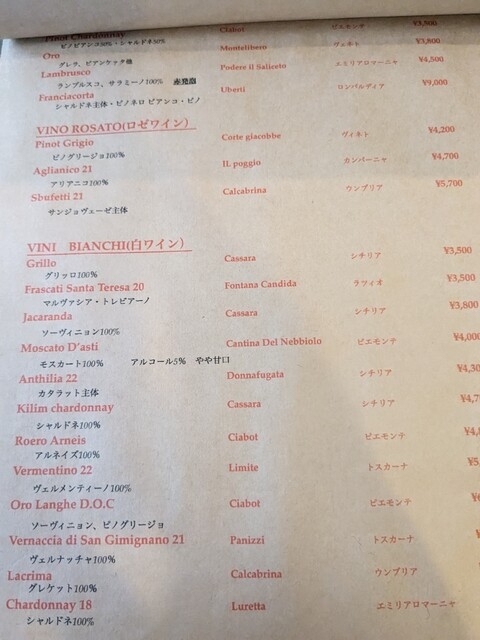 Pinot Chardonnay Ciabot ピエモンテ ¥3,500
ピノビアンコ50%・シャルドネ50%
Oro Montelibero ヴェネト ¥3,800
グレラ、ビアンケッタ他
Lambrusco Podere il Saliceto エミリアロマーニャ ¥4,500
ランブルスコ、サラミーノ100% 赤発泡
Franciacorta Uberti ロンバルディア ¥9,000
シャルドネ主体・ピノネロ ピアンコ・ピノ
VINO ROSATO(ロゼワイン)
Pinot Grigio Corte giacobbe ヴィネト ¥4,200
ピノグリージョ100%
Aglianico 21 IL poggio カンパーニャ ¥4,700
アリアニコ100%
Sbufetti 21 Calcabrina ウンブリア ¥5,700
サンジョヴェーゼ主体
VINI BIANCHI(白ワイン)
Grillo Cassara シチリア ¥3,500
グリッロ100%
Frascati Santa Teresa 20 Fontana Candida ラツィオ ¥3,500
マルヴァシア・トレビアーノ
Jacaranda Cassara シチリア ¥3,800
ソーヴィニョン100%
Moscato D'asti Cantina Del Nebbiolo ピエモンテ ¥4,000
モスカート100% アルコール5% やや甘口
Anthilia 22 Donnafugata シチリア ¥4,30
カタラット主体
Kilim chardonnay Cassara シチリア ¥4,
シャルドネ100%
Roero Arneis Ciabot ピエモンテ ¥4,
アルネイズ100%
Vermentino 22 Limite トスカーナ ¥5,
ヴェルメンティーノ100%
Oro Langhe D.O.C Ciabot ピエモンテ
ソーヴィニョン、ピノグリージョ
Vernaccia di San Gimignano 21 Panizzi トスカーナ ¥
ヴェルナッチャ100%
Lacrima Calcabrina ウンブリア ¥
グレケット100%
Chardonnay 18 Luretta エミリアロマーニャ
シャルドネ100%